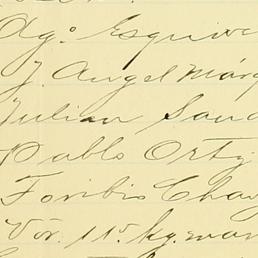 Ago. Esquive
J. Angel Márq
Julian Sand
Pablo Ortiz
Toribio Chav